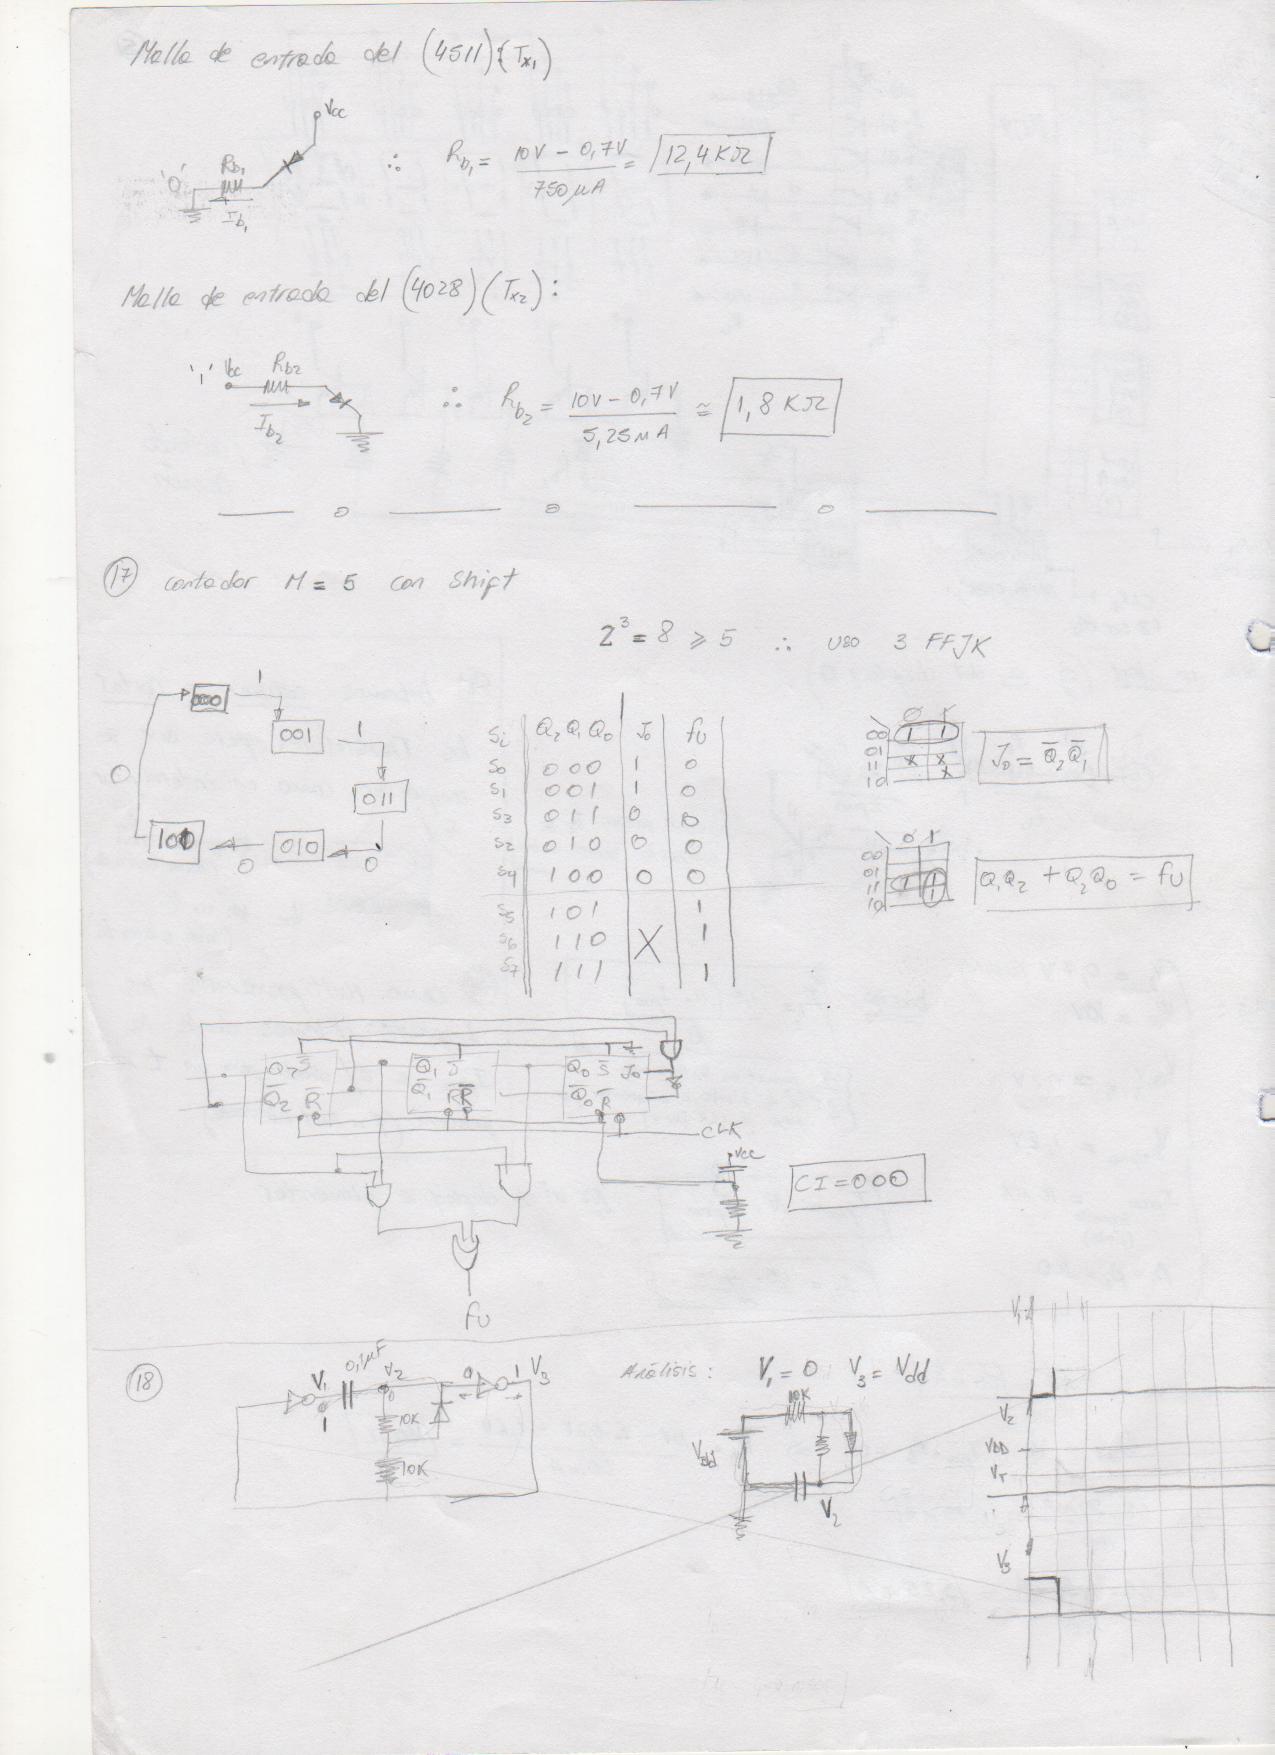 Malla de entrada del (4511) (Tx1)
Vcc
'0' Rb1
Ib1
∴ Rb1 = 10V - 0,7V / 750 μA = 12,4 KΩ
Malla de entrada del (4028) (Tx2):
'1' Vcc Rb2
Ib2
∴ Rb2 = 10V - 0,7V / 5,25 μA ≅ 1,8 KΩ
17 contador M = 5 con shift
2³ = 8 ⩾ 5 ∴ uso 3 FFJK
000 1
001 1
011
0
100 0 010 0
Si Q2 Q1 Q0 J0 fu
S0 000 1 0
S1 001 1 0
S3 011 0 0
S2 010 0 0
S4 100 0 0
S5 101 1
S6 110 X 1
S7 111 1
0 1
00 1 1
01
11 x x
10 x
J0 = Q̄2 Q̄1
0 1
00
01
11 1 1
10 1
Q1Q2 + Q2Q0 = fu
Q2 S Q1 S Q0 S J0
Q̄2 R Q̄1 R Q̄0 R
CLK
Vcc
CI = 000
fu
18
V1 0,1μF V2 0 1 V3
0 1
10K
10K
Análisis: V1 = 0 V3 = Vdd
10K
Vdd
V2
V1
V2
VDD
VT
V3